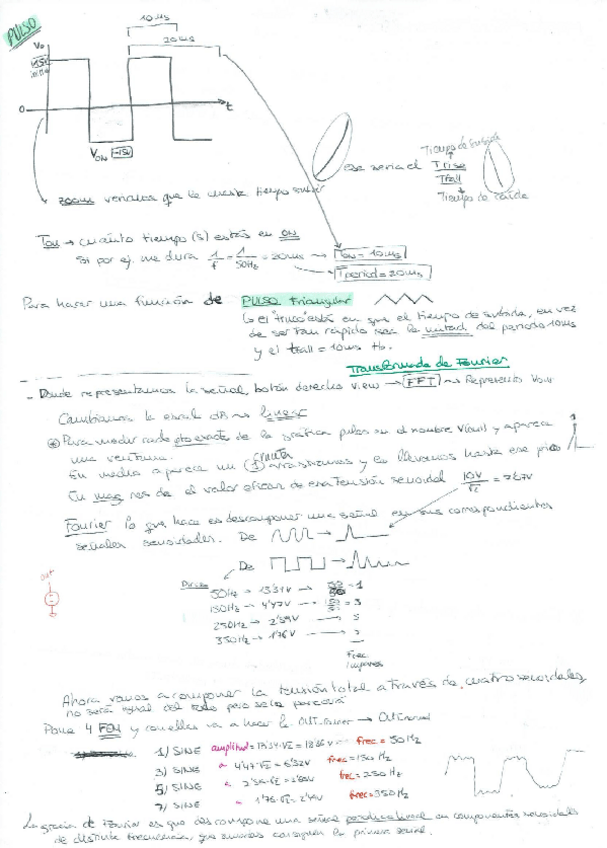 PULSO
10 ms
20 ms
Vo
0
t
VON -15V
ese sería el Trise
Tfall
Tiempo de subida
Tiempo de caída
zoom veríamos que le cuesta tiempo subir
Ton → cuánto tiempo (s) estás en ON
Si por ej. me dura 1/f = 1/50Hz = 20ms → Ton = 10ms
Tperiod = 20ms
Para hacer una función de PULSO triangular
el "truco" está en que el tiempo de subida, en vez
de ser tan rápido sea la mitad del periodo 10ms
y el tfall = 10ms tb.
Transformada de Fourier
- Donde representamos la señal, botón derecho view → FFT → Represento Vout
Cambiamos la escala dB → linear
Para medir cada pto exacto de la gráfica pulso en el nombre V(out) y aparece
una ventana.
En medio aparece un 1 arrastramos y lo llevamos hasta ese pico
En mag nos da el valor eficaz de esa tensión senoidal 10V/√2 = 7'07V
Fourier lo que hace es descomponer una señal en sus correspondientes
señales senoidales. De
De
out
50Hz → 13'34V → = 1
150Hz → 4'47V → = 3
250Hz → 5
350Hz → 1'76V → 7
Frec.
impares
Ahora vamos a componer la tensión total a través de cuatro senoidales,
no será igual del todo pero se le parecerá
Pone 4 FEM y con ellas va a hacer la
1) SINE amplitud = 13'34·√2 = 18'86V frec = 50 Hz
3) SINE " 4'47·√2 = 6'32V frec = 150 Hz
5) SINE " frec = 250 Hz
7) SINE " 1'76·√2 = frec = 350 Hz
La gracia de Fourier es que descompone una señal en componentes senoidales
de distinta frecuencia, que sumadas consiguen la primera señal.